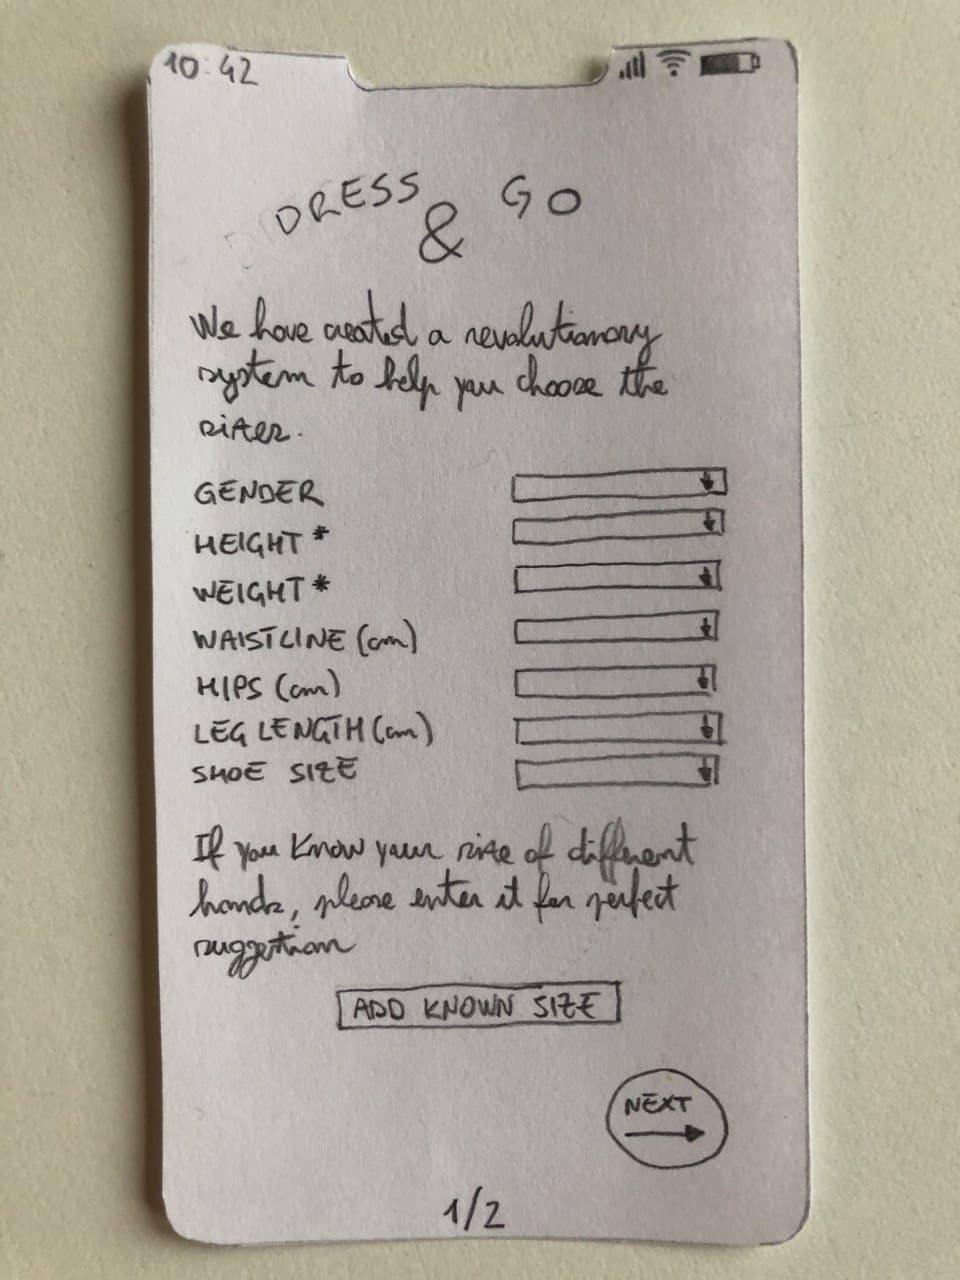 10:42
DRESS & GO
We have created a revolutionary
system to help you choose the
sizes.
GENDER
HEIGHT *
WEIGHT *
WAISTLINE (cm)
HIPS (cm)
LEG LENGTH (cm)
SHOE SIZE
If you know your size of different
brands, please enter it for perfect
suggestion
ADD KNOWN SIZE
NEXT
1/2